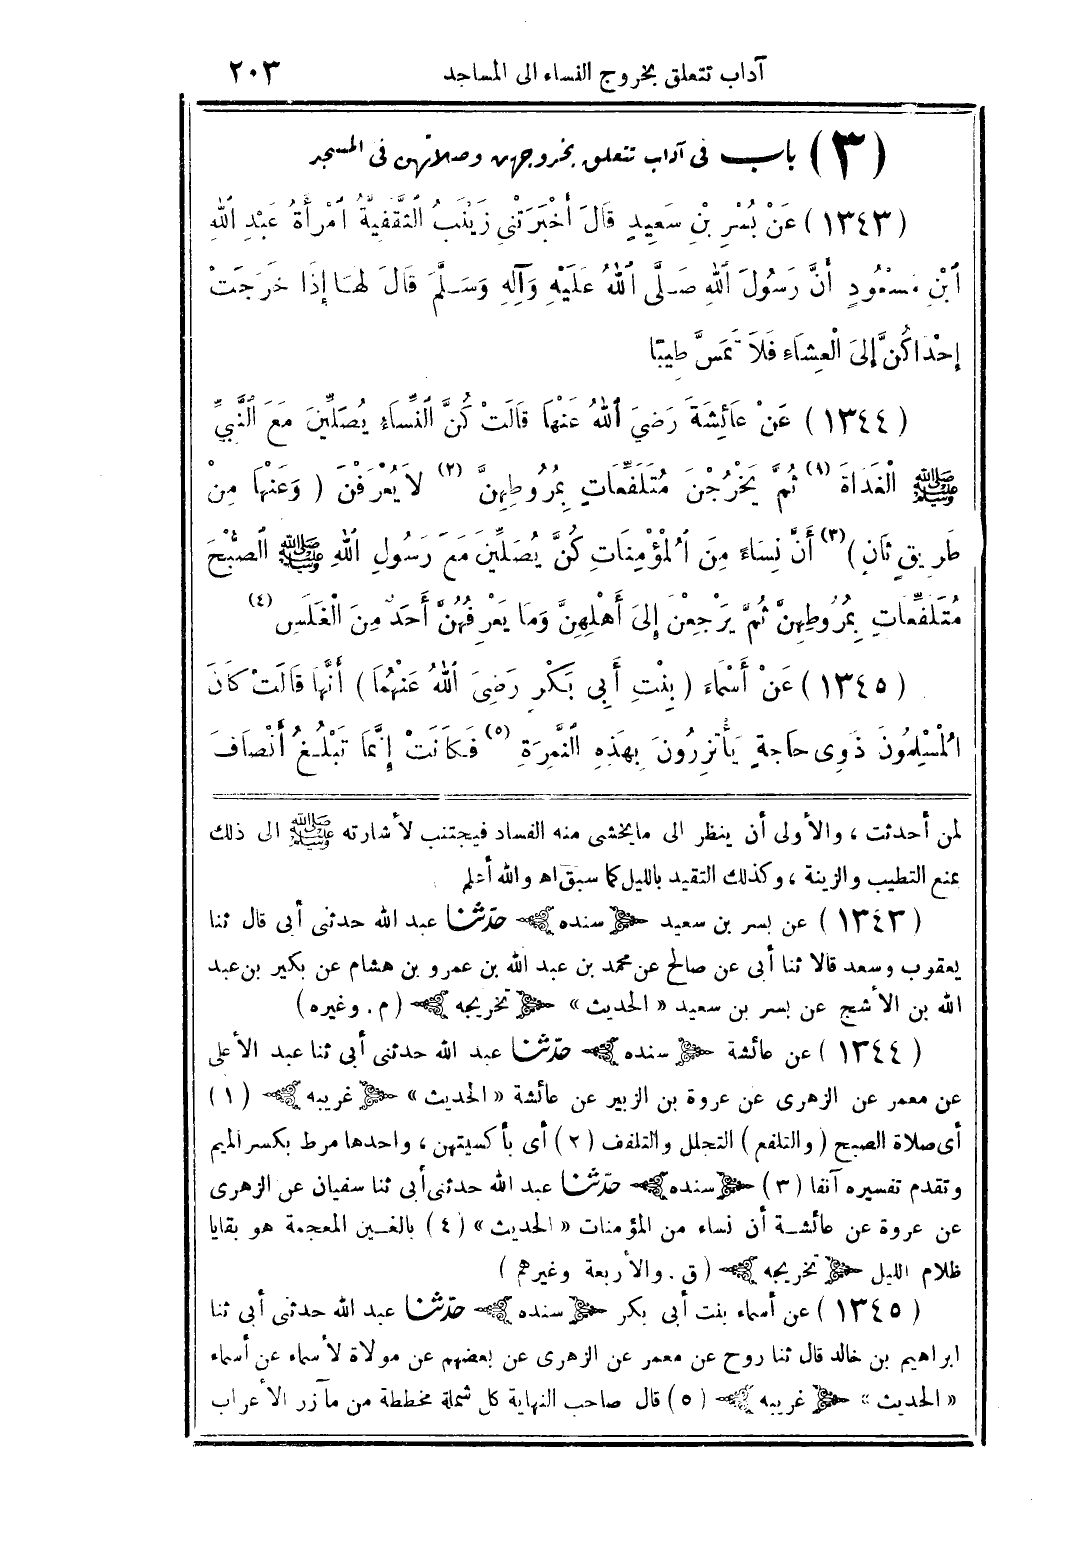 آداب تتعلق بخروج النساء الى المساجد ٢٠٣
(٣) باب فى آداب تتعلق بخروجهن وصلاتهن فى المسجد
(١٣٤٣) عَنْ بُسْرِ بْنِ سَعِيدٍ قَالَ أَخْبَرَتْنِي زَيْنَبُ الثَّقَفِيَّةُ امْرَأَةُ عَبْدِ اللهِ
ابْنِ مَسْعُودٍ أَنَّ رَسُولَ اللهِ صَلَّى اللهُ عَلَيْهِ وَآلِهِ وَسَلَّمَ قَالَ لَهَا إِذَا خَرَجَتْ
إِحْدَاكُنَّ إِلَى الْعِشَاءِ فَلَا تَمَسَّ طِيبًا
(١٣٤٤) عَنْ عَائِشَةَ رَضِيَ اللهُ عَنْهَا قَالَتْ كُنَّ النِّسَاءُ يُصَلِّينَ مَعَ النَّبِيِّ
ﷺ الْغَدَاةَ (١) ثُمَّ يَخْرُجْنَ مُتَلَفِّعَاتٍ بِمُرُوطِهِنَّ (٢) لَا يُعْرَفْنَ (وَعَنْهَا مِنْ
طَرِيقٍ ثَانٍ) (٣) أَنَّ نِسَاءً مِنَ الْمُؤْمِنَاتِ كُنَّ يُصَلِّينَ مَعَ رَسُولِ اللهِ ﷺ الصُّبْحَ
مُتَلَفِّعَاتٍ بِمُرُوطِهِنَّ ثُمَّ يَرْجِعْنَ إِلَى أَهْلِهِنَّ وَمَا يَعْرِفُهُنَّ أَحَدٌ مِنَ الْغَلَسِ (٤)
(١٣٤٥) عَنْ أَسْمَاءَ (بِنْتِ أَبِي بَكْرٍ رَضِيَ اللهُ عَنْهُمَا) أَنَّهَا قَالَتْ كَانَ
الْمُسْلِمُونَ ذَوِى حَاجَةٍ يَأْتَزِرُونَ بِهَذِهِ النَّمِرَةِ (٥) فَكَانَتْ إِنَّمَا تَبْلُغُ أَنْصَافَ
لمن أحدثت ، والأولى أن ينظر الى مايخشى منه الفساد فيجتنب لأشارته ﷺ الى ذلك
بمنع التطيب والزينة ، وكذلك التقيد بالليل كما سبق اه والله أعلم
(١٣٤٣) عن بسر بن سعيد سنده حدّثنا عبد الله حدثنى أبى قال ثنا
يعقوب وسعد قالا ثنا أبى عن صالح عن محمد بن عبد الله بن عمرو بن هشام عن بكير بن عبد
الله بن الأشج عن بسر بن سعيد « الحديث » تخريجه (م. وغيره)
(١٣٤٤) عن عائشة سنده حدّثنا عبد الله حدثنى أبي ثنا عبد الأعلى
عن معمر عن الزهرى عن عروة بن الزبير عن عائشة « الحديث » غريبه (١)
أى صلاة الصبح (والتلفع) التجلل والتلفف (٢) أى بأكسيتهن ، واحدها مرط بكسر الميم
وتقدم تفسيره آنفا (٣) سنده حدّثنا عبد الله حدثنى أبى ثنا سفيان عن الزهرى
عن عروة عن عائشة أن نساء من المؤمنات « الحديث » (٤) بالغين المعجمة هو بقايا
ظلام الليل تخريجه (ق. والأربعة وغيرهم)
(١٣٤٥) عن أسماء بنت أبى بكر سنده حدّثنا عبد الله حدثنى أبى ثنا
ابراهيم بن خالد قال ثنا روح عن معمر عن الزهرى عن بعضهم عن مولاة لأسماء عن أسماء
« الحديث » غريبه (٥) قال صاحب النهاية كل شملة مخططة من مآزر الأعراب